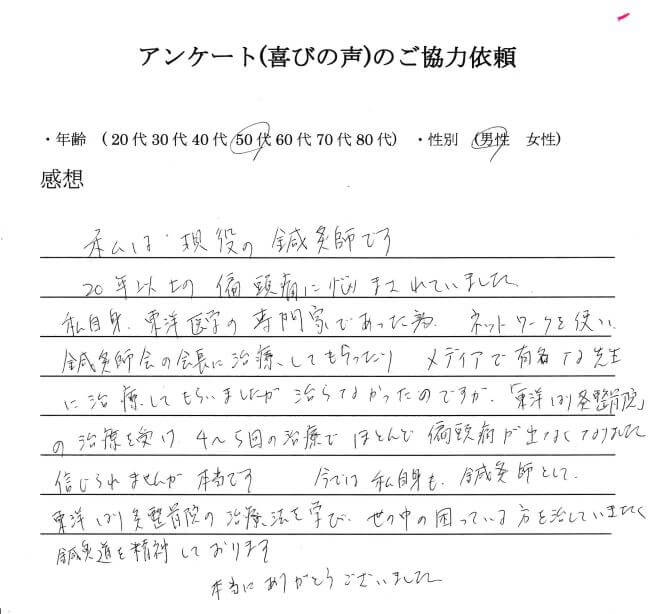 アンケート(喜びの声)のご協力依頼
・年齢 (20代30代40代50代60代70代80代) ・性別 (男性 女性)
感想
私は 現役の 鍼灸師です
20年以上の 偏頭痛に悩まされていました
私自身、東洋医学の専門家であった為、ネットワークを使い、
鍼灸師会の会長に治療してもらったり メディアで有名な先生
に治療してもらいましたが治らなかったのですが、「東洋はり灸整骨院」
の治療を受け 4〜5回の治療で ほとんど偏頭痛が出なくなりました
信じられませんが 本当です 今では 私自身も、鍼灸師として、
東洋はり灸整骨院の治療法を学び、世の中の困っている方を治していきたく
鍼灸道を精神しております
本当にありがとうございました